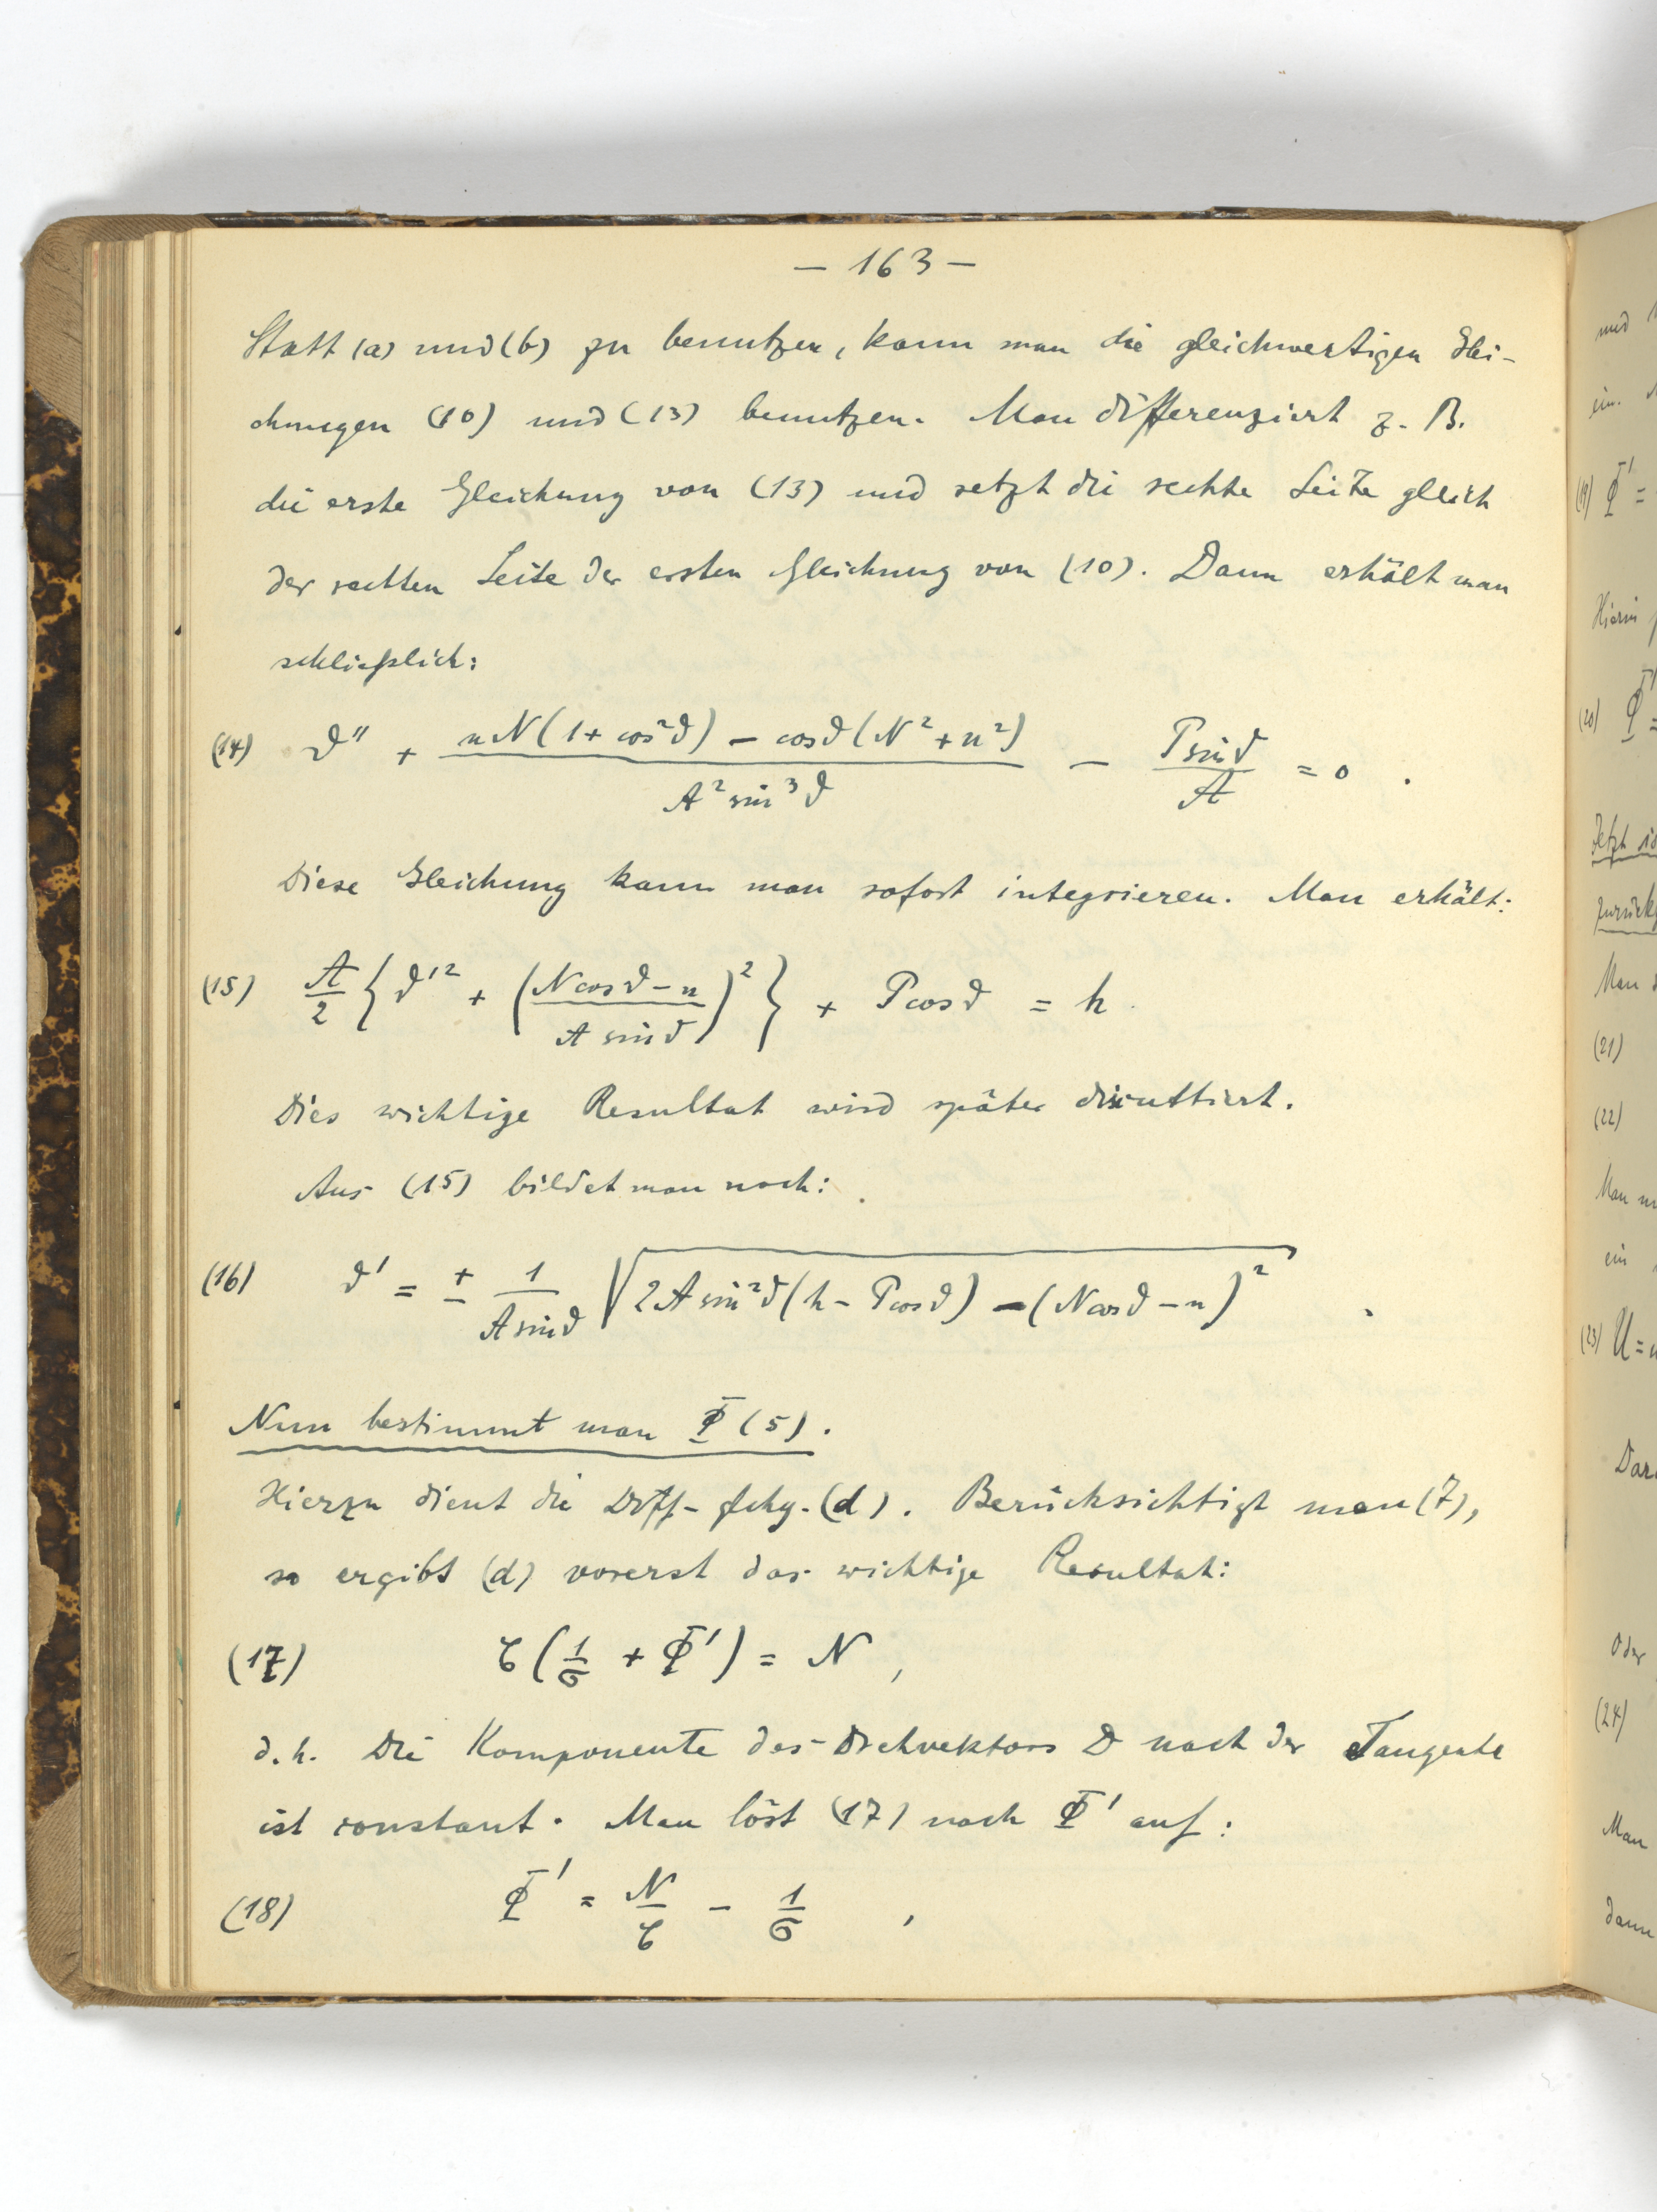 — 163 —
Statt (a) und (b) zu benutzen, kann man die gleichwertigen Glei-
chungen (10) und (13) benutzen. Man differenziert z. B.
die erste Gleichung von (13) und setzt die rechte Seite gleich
der rechten Seite der ersten Gleichung von (10). Dann erhält man
schließlich:
(14) ϑ'' + (nN(1+cos²ϑ) − cosϑ(N²+n²))/(A² sin³ϑ) − (P sinϑ)/A = 0 .
Diese Gleichung kann man sofort integrieren. Man erhält:
(15) A/2 {ϑ'² + ((N cosϑ − n)/(A sinϑ))²} + P cosϑ = h .
Dies wichtige Resultat wird später discuttiert.
Aus (15) bildet man noch:
(16) ϑ' = ± 1/(A sinϑ) √(2A sin²ϑ(h − P cosϑ) − (N cosϑ − n)²) .
Nun bestimmt man Φ (5).
Hierzu dient die Diff-glchg. (d). Berücksichtigt man (7),
so ergibt (d) vorerst das wichtige Resultat:
(17) C(1/σ + Φ') = N ,
d. h. Die Komponente des Drehvektors D nach der Tangente
ist constant. Man löst (17) nach Φ' auf:
(18) Φ' = N/C − 1/σ ,
und
ein.
(19) Φ' =
Hierin
(20) Φ' =
Jetzt
zurück
Man
(21)
(22)
Man
ein
(23) U =
Dar
Oder
(24)
Man
dann